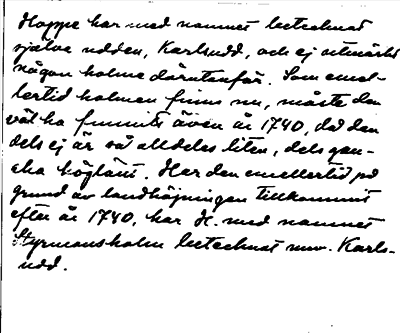 Hoppe har med namnet betecknat
själva udden, Karlsudd, och ej utmärkt
någon holme därutanför. Som emel-
lertid holmen finns nu, måste den
väl ha funnits även år 1740, då den
dels ej är så alldeles liten, dels gan-
ska högländ. Har den emellertid på
grund av landhöjningen tillkommit
efter år 1740, har H. med namnet
Styrmansholm betecknat nuv. Karls-
udd.